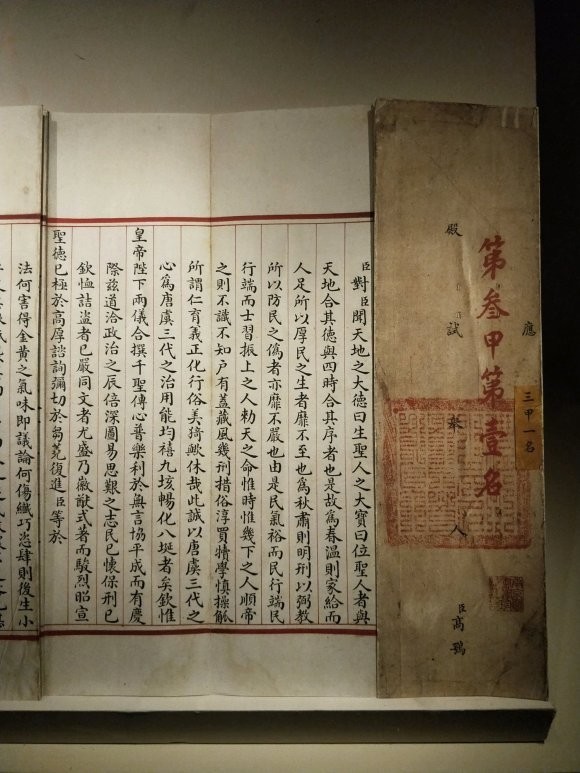 應
殿試舉人
臣高鶚
第叁甲第壹名
三甲一名
臣對臣聞天地之大德曰生聖人之大寶曰位聖人者與
天地合其德與四時合其序者也是故為春溫則家給而
人足所以厚民之生者靡不至也為秋肅則明刑以弼教
所以防民之偽者亦靡不嚴也由是民氣裕而民行端民
行端而士習振上之人勅天之命惟時惟幾下之人順帝
之則不識不知户有蓋藏風幾刑措俗淳買犢學慎操觚
所謂仁育義正化行俗美猗歟休哉此誠以唐虞三代之
心為唐虞三代之治用能均禧九垓暢化八埏者矣欽惟
皇帝陛下兩儀合撰千聖傳心普樂利於無言協平成而有慶
際茲道洽政治之辰倍深圖易思艱之志民已懷保刑已
欽恤詰盜者已嚴同文者尤盛乃徽猷式著而駿烈昭宣
聖德已極於高厚諮詢彌切於芻蕘復進臣等於
法何害得金黃之氣味即議論何傷纖巧恣肆則後生小